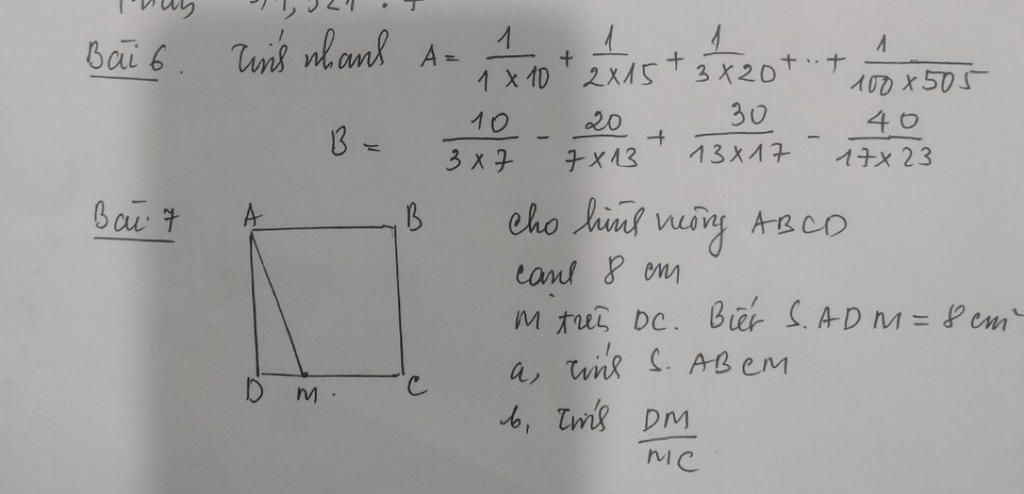 Bài 6. Tính nhanh A = 1/(1 × 10) + 1/(2 × 15) + 1/(3 × 20) + ... + 1/(100 × 505)
B = 10/(3 × 7) - 20/(7 × 13) + 30/(13 × 17) - 40/(17 × 23)
Bài 7
A B
D M. C
Cho hình vuông ABCD
cạnh 8 cm
M trên DC. Biết S.ADM = 8 cm²
a, Tính S. ABCM
b, Tính DM/MC